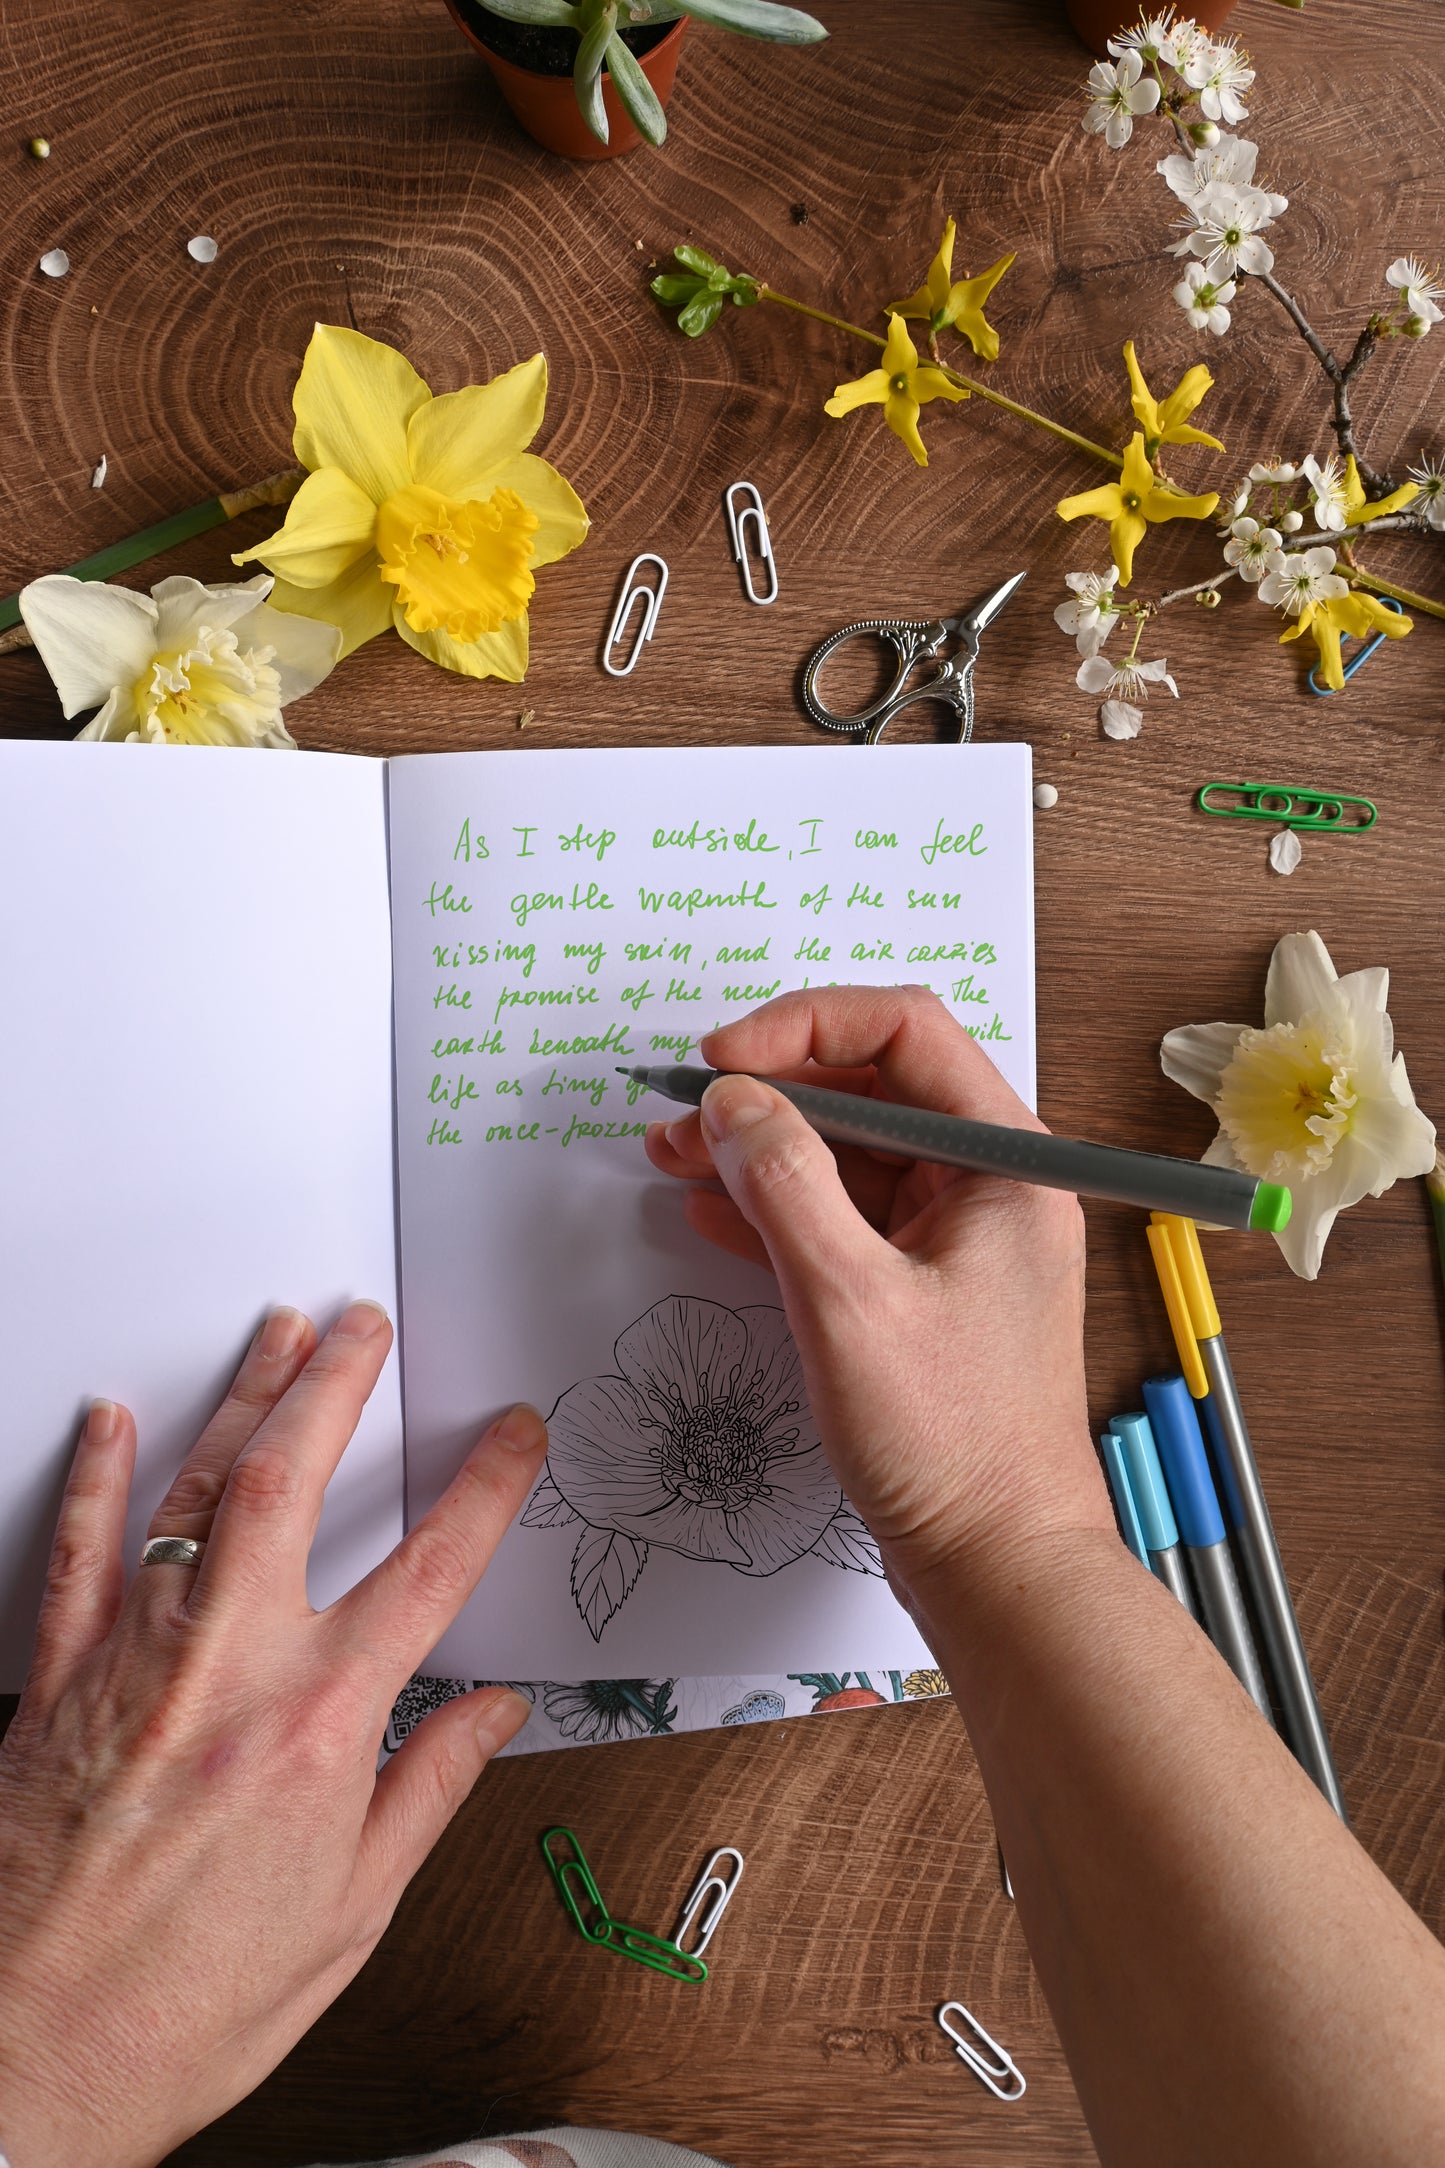 As I step outside, I can feel
the gentle warmth of the sun
kissing my skin, and the air carries
the promise of the new The
earth beneath my with
life as tiny
the once-frozen